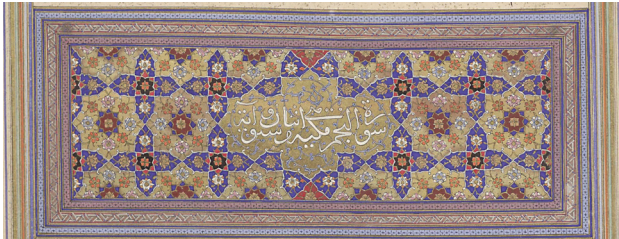 سورة النجم مكية اثنان و ستون آية